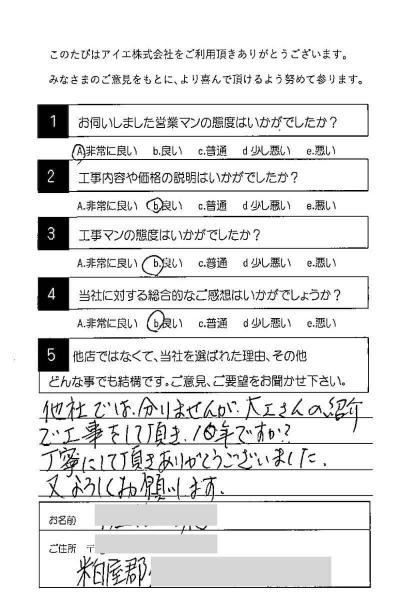 このたびはアイエ株式会社をご利用頂きありがとうございます。
みなさまのご意見をもとに、より喜んで頂けるよう努めて参ります。
1 お伺いしました営業マンの態度はいかがでしたか？
A.非常に良い b.良い c.普通 d 少し悪い e.悪い
2 工事内容や価格の説明はいかがでしたか？
A.非常に良い b.良い c.普通 d 少し悪い e.悪い
3 工事マンの態度はいかがでしたか？
A.非常に良い b.良い c.普通 d 少し悪い e.悪い
4 当社に対する総合的なご感想はいかがでしょうか？
A.非常に良い b.良い c.普通 d 少し悪い e.悪い
5 他店ではなくて、当社を選ばれた理由、その他
どんな事でも結構です。ご意見、ご要望をお聞かせ下さい。
他社では、分りませんが、大工さんの紹介
で工事をして頂き、10年ですか？
丁寧にして頂きありがとうございました。
又よろしくお願いします。
お名前
ご住所 〒
粕屋郡